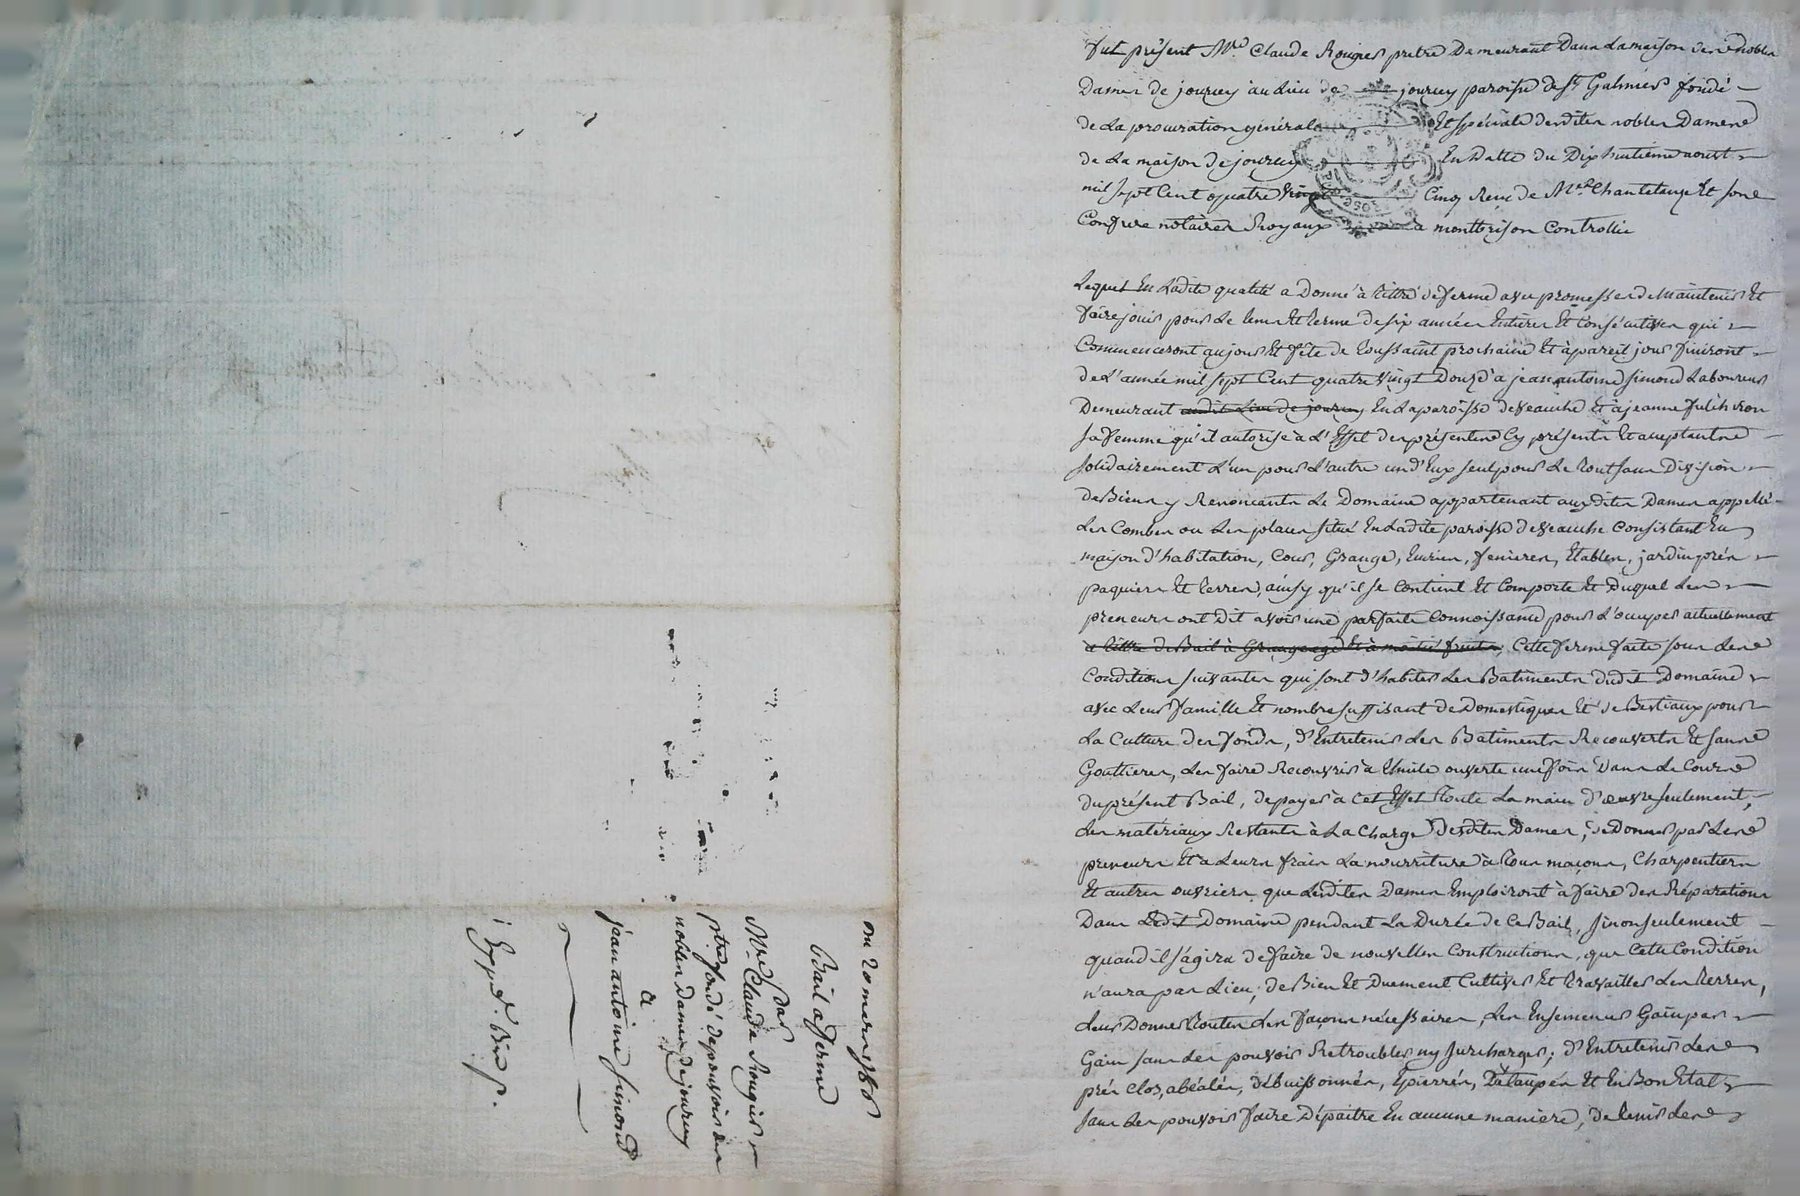 fut présent Mre Claude Rougier pretre Demeurant Dans La maison des nobles
Dames de jourcey au Lieu de jourcey paroisse de St Galmier fondé
de La procuration générale Et spéciale desdites nobles Dames
de La maison de jourcey En Datte du Dix huitieme aoust
mil sept Cent quatre vingt Cinq Reçue de Me Chantelauze Et son
Confrere notaires Royaux a montbrison Controllée
Lequel En Ladite qualité a Donné à Tittre de ferme avec promesses de Maintenir Et
faire jouir pour Le tems Et terme de six années Entieres Et Consécutives qui
Commenceront au jour Et fête de Toussaint prochaine Et à pareil jour finiront
de L'année mil sept Cent quatre vingt Douze a jean antoine simond Laboureur
Demeurant audit Lieu de jourcey En La paroisse de veauche Et à jeanne
sa femme qu'il autorise à L'Effet des présentes Cy présents Et acceptants
solidairement L'un pour L'autre un d'Eux seul pour Le Tout sans Division
de Biens y Renonçants Le Domaine appartenant auxdites Dames appellé
Les Combes ou Les places situé En Ladite paroisse de veauche Consistant En
maison d'habitation, Cour, Grange, Ecuries, fenieres, Etables, jardin prés
paquiers Et terres, ainsy qu'il se Contient Et Comporte Et Duquel Les
preneurs ont Dit avoir une parfaite Connoissance pour L'occuper actuellement
a tittre de Bail à Grangeage Et à moitié fruits, Cette ferme faite sous Les
Conditions suivantes qui sont D'habiter Les Batiments dudit Domaine
avec Leur famille Et nombre suffisant de Domestiques Et de Bestiaux pour
La Culture des fonds, D'Entretenir Les Batiments Recouverts Et sans
Gouttieres, Les faire Recouvrir à Thuile ouverte une fois Dans Le Cours
du présent Bail, de payer à Cet Effet Toute La main D'œuvre seulement,
Les matériaux Restants à La Charge Desdites Dames, de Donner par Les
preneurs Et a Leurs frais La nourriture à Tous maçons, Charpentiers
Et autres ouvriers que Lesdites Dames Emploiront à faire des Réparations
Dans Ledit Domaine pendant La Durée de Ce Bail, sinon seulement
quand il s'agira de faire de nouvelles Constructions, que Cette Condition
n'aura pas Lieu; de Bien Et Duement Cultiver Et travailler Les Terres,
Leur Donner Toutes Les façons nécessaires, Les Ensemencer Gain par
Gain sans Les pouvoir Retroubler ny surcharger; D'Entretenir Les
prés Clos, abéalés, débuissonnés, Epierrés, Détaupés Et En Bon Etat
sans Les pouvoir faire Dépaitre En aucune maniere, de tenir Les
Du 20 mars 1786
Bail a ferme
par
Mre Claude Rougier
ptre fondé de pouvoir des
nobles Dames de jourcey
a
jean antoine simond